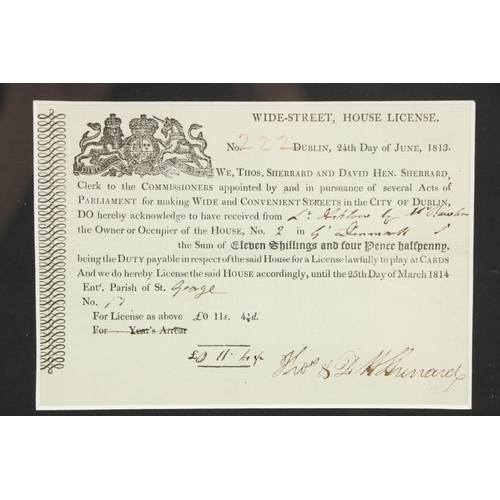 WIDE-STREET, HOUSE LICENSE.
No. 222 DUBLIN, 24th Day of JUNE, 1813.
WE, THOS. SHERRARD AND DAVID HEN. SHERRARD,
Clerk to the COMMISSIONERS appointed by and in pursuance of several Acts of
PARLIAMENT for making WIDE and CONVENIENT STREETS in the CITY OF DUBLIN,
DO hereby acknowledge to have received from by
the Owner or Occupier of the HOUSE, No. 2 in Gt Denmark
the Sum of Eleven Shillings and four Pence halfpenny,
being the DUTY payable in respect of the said House for a License lawfully to play at CARDS
And we do hereby License the said HOUSE accordingly, until the 25th Day of March 1814
Entd. Parish of St. George
No. 17
For License as above £0 11s. 4½d.
For Year's Arrear
£0 11 4½
Thos & D H Sherrard